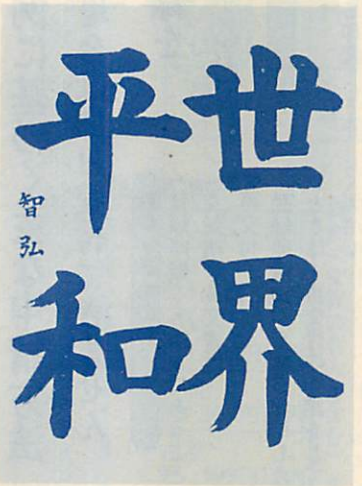 世界
平和
智弘